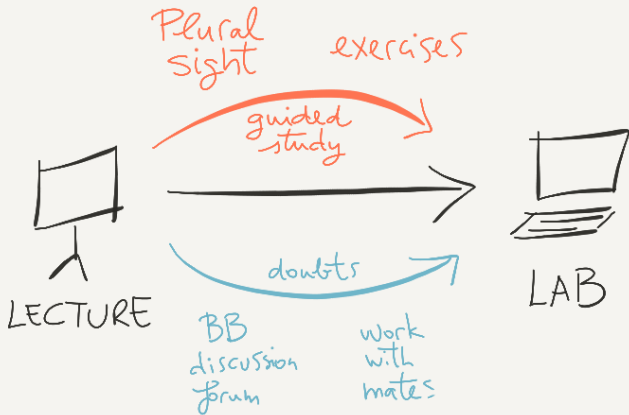 Plural
sight
exercises
guided
study
LECTURE
doubts
LAB
BB
discussion
forum
work
with
mates